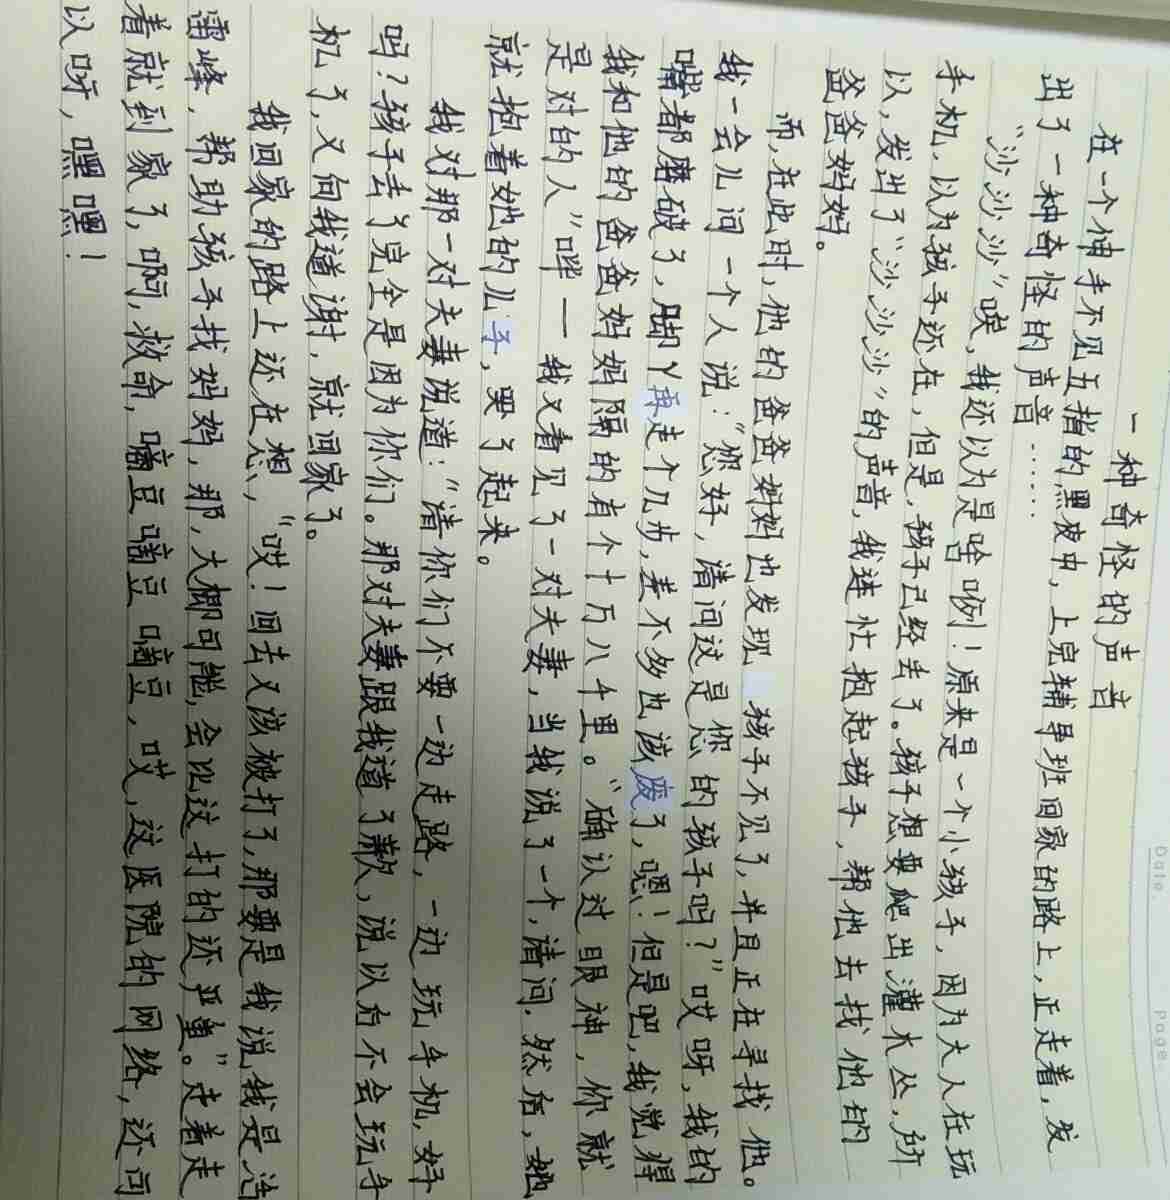 一种奇怪的声音
在一个伸手不见五指的黑夜中，上完辅导班回家的路上，正走着，发
出了一种奇怪的声音……
“沙沙沙”唉，我还以为是啥咧！原来是一个小孩子，因为大人在玩
手机，以为孩子还在，但是，孩子已经丢了。孩子想要爬出灌木丛，所
以，发出了“沙沙沙”的声音，我连忙抱起孩子，帮他去找他的
爸爸妈妈。
而，在此时，他的爸爸妈妈也发现 孩子不见了，并且正在寻找他。
我一会儿问一个人说：“您好，请问这是您的孩子吗？”哎呀，我的
嘴都磨破了，脚丫再走个几步，差不多也该废了，嗯！但是吧，我觉得
我和他的爸爸妈妈隔的有个十万八千里。“确认过眼神，你就
是对的人”哔一我又看见了一对夫妻，当我说了一个，请问.然后，她
就抱着她的儿子，哭了起来。
我对那一对夫妻说道：“请你们不要一边走路，一边玩手机，好
吗？孩子丢了完全是因为你们。那对夫妻跟我道了歉，说以后不会玩手
机了，又向我道谢，就回家了。
我回家的路上还在想，“哎！回去又该被打了，那要是我说，我是活
雷峰，帮助孩子找妈妈，那，大概可能，会比这打的还严重。”走着走
着就到家了，啊，救命，嘀豆嘀豆嘀豆，哎，这医院的网络，还可
以呀，嘿嘿！
Date.
Page.